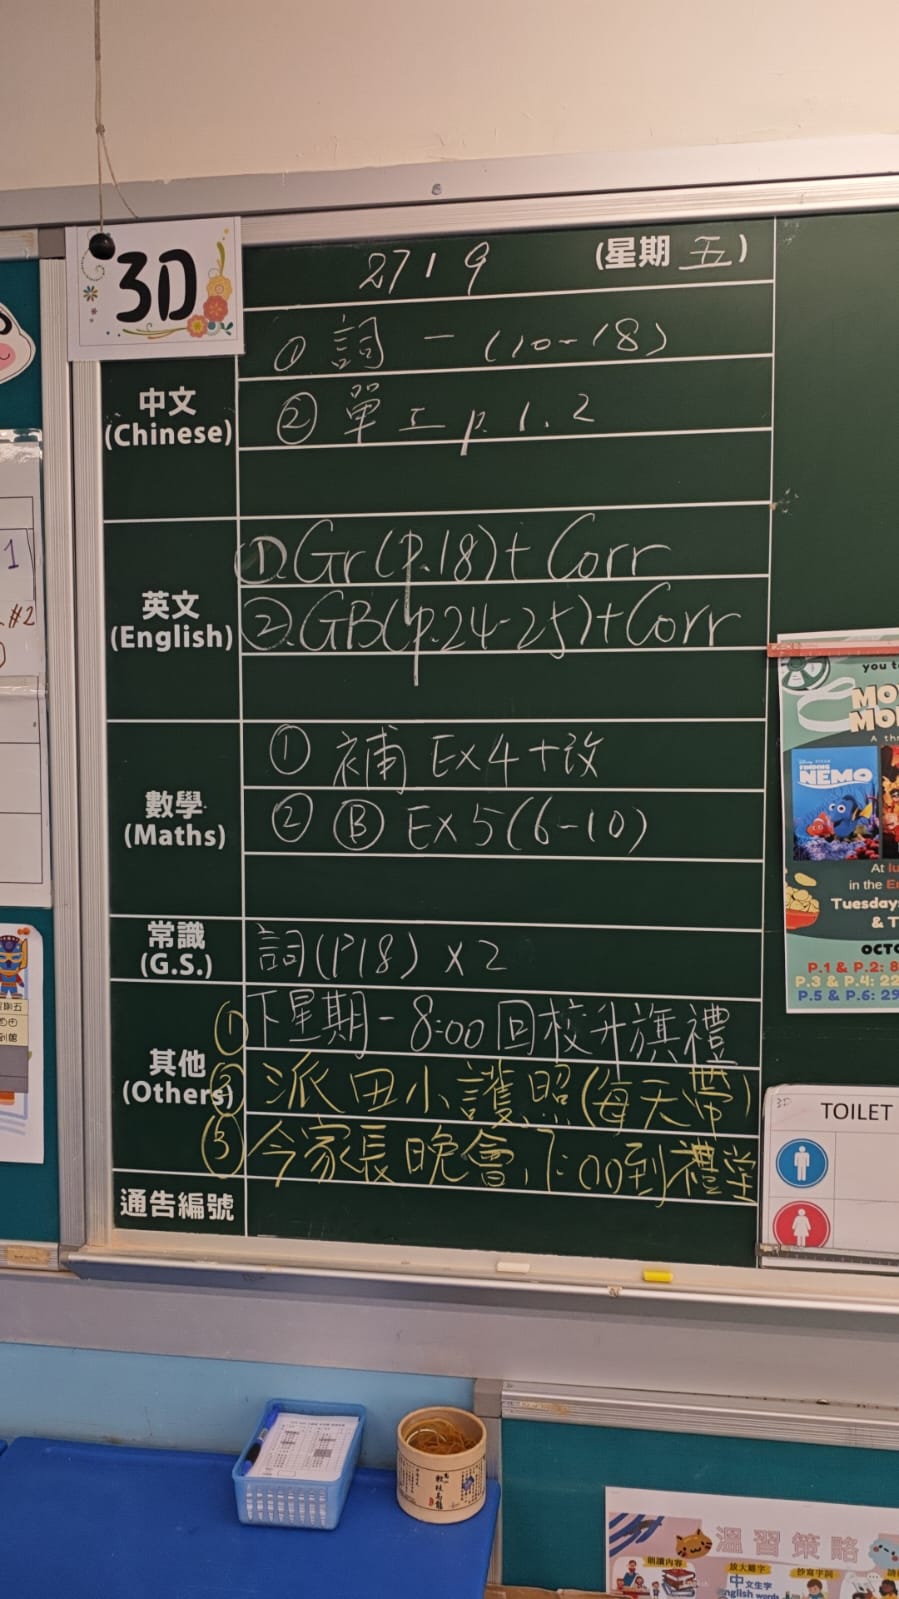 3D
27 | 9 (星期 五)
中文
(Chinese)
① 詞 一 (10-18)
② 單工 p.1.2
英文
(English)
①.Gr(p.18)+Corr
②.GB(p.24-25)+Corr
數學
(Maths)
① 補 Ex4+改
② Ⓑ Ex5(6-10)
常識
(G.S.)
詞(P18) x2
其他
(Others)
①下星期一8:00回校升旗禮
② 派田小護照(每天帶)
③ 今家長晚會,7:00到禮堂
通告編號
1
#2
you
A
FINDING
NEMO
At
in the
Tuesdays
&
OCT
P.1 & P.2: 8
P.3 & P.4: 22
P.5 & P.6: 29
3D
TOILET
溫習策略
朗讀內容
放大難字
抄寫字詞
中文生字
English words